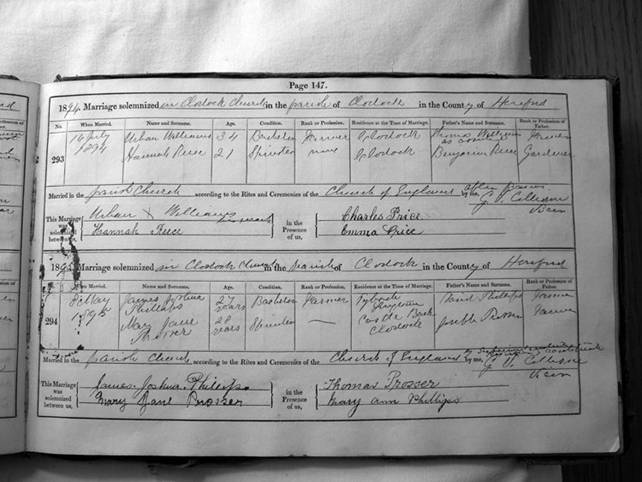 Page 147.
1894 Marriage solemnized in Clodock Church in the parish of Clodock in the County of Hereford
No. When Married. Name and Surname. Age. Condition. Rank or Profession. Residence at the Time of Marriage. Father's Name and Surname. Rank or Profession of Father.
293 16 July 1894 Urban Williams 34 Bachelor Farmer Clodock Williams Farmer
Hannah Reece 21 Spinster Clodock Benjamin Reece Gardener
Married in the parish Church according to the Rites and Ceremonies of the Church of England after by me,
G. Vicar
This Marriage was solemnized between us, Urban X Williams his mark in the Presence of us, Charles Price
Hannah Reece Emma Price
189 Marriage solemnized in Clodock Church in the parish of Clodock in the County of Hereford
When Married. Name and Surname. Age. Condition. Rank or Profession. Residence at the Time of Marriage. Father's Name and Surname. Rank or Profession of Father.
294 8 May 1895 James Joshua Phillips 27 years Bachelor Farmer David Phillips Farmer
Mary Jane Prosser 28 years Spinster — Castle Clodock Joseph Prosser Farmer
Married in the parish Church according to the Rites and Ceremonies of the Church of England by me,
G. Vicar
This Marriage was solemnized between us, James Joshua Phillips in the Presence of us, Thomas Prosser
Mary Jane Prosser Mary Ann Phillips